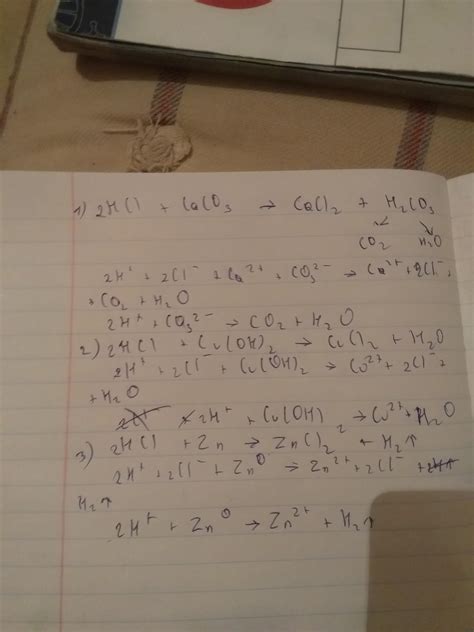 1) 2HCl + CaCO₃ → CaCl₂ + H₂CO₃
↙ ↘
CO₂ H₂O
2H⁺ + 2Cl⁻ + Ca²⁺ + CO₃²⁻ → Ca²⁺ + 2Cl⁻ +
+ CO₂ + H₂O
2H⁺ + CO₃²⁻ → CO₂ + H₂O
2) 2HCl + Cu(OH)₂ → CuCl₂ + H₂O
2H⁺ + 2Cl⁻ + Cu(OH)₂ → Cu²⁺ + 2Cl⁻ +
+ H₂O
2H⁺ + Cu(OH)₂ → Cu²⁺ + H₂O
3) 2HCl + Zn → ZnCl₂ + H₂↑
2H⁺ + 2Cl⁻ + Zn⁰ → Zn²⁺ + 2Cl⁻ +
H₂↑
2H⁺ + Zn⁰ → Zn²⁺ + H₂↑